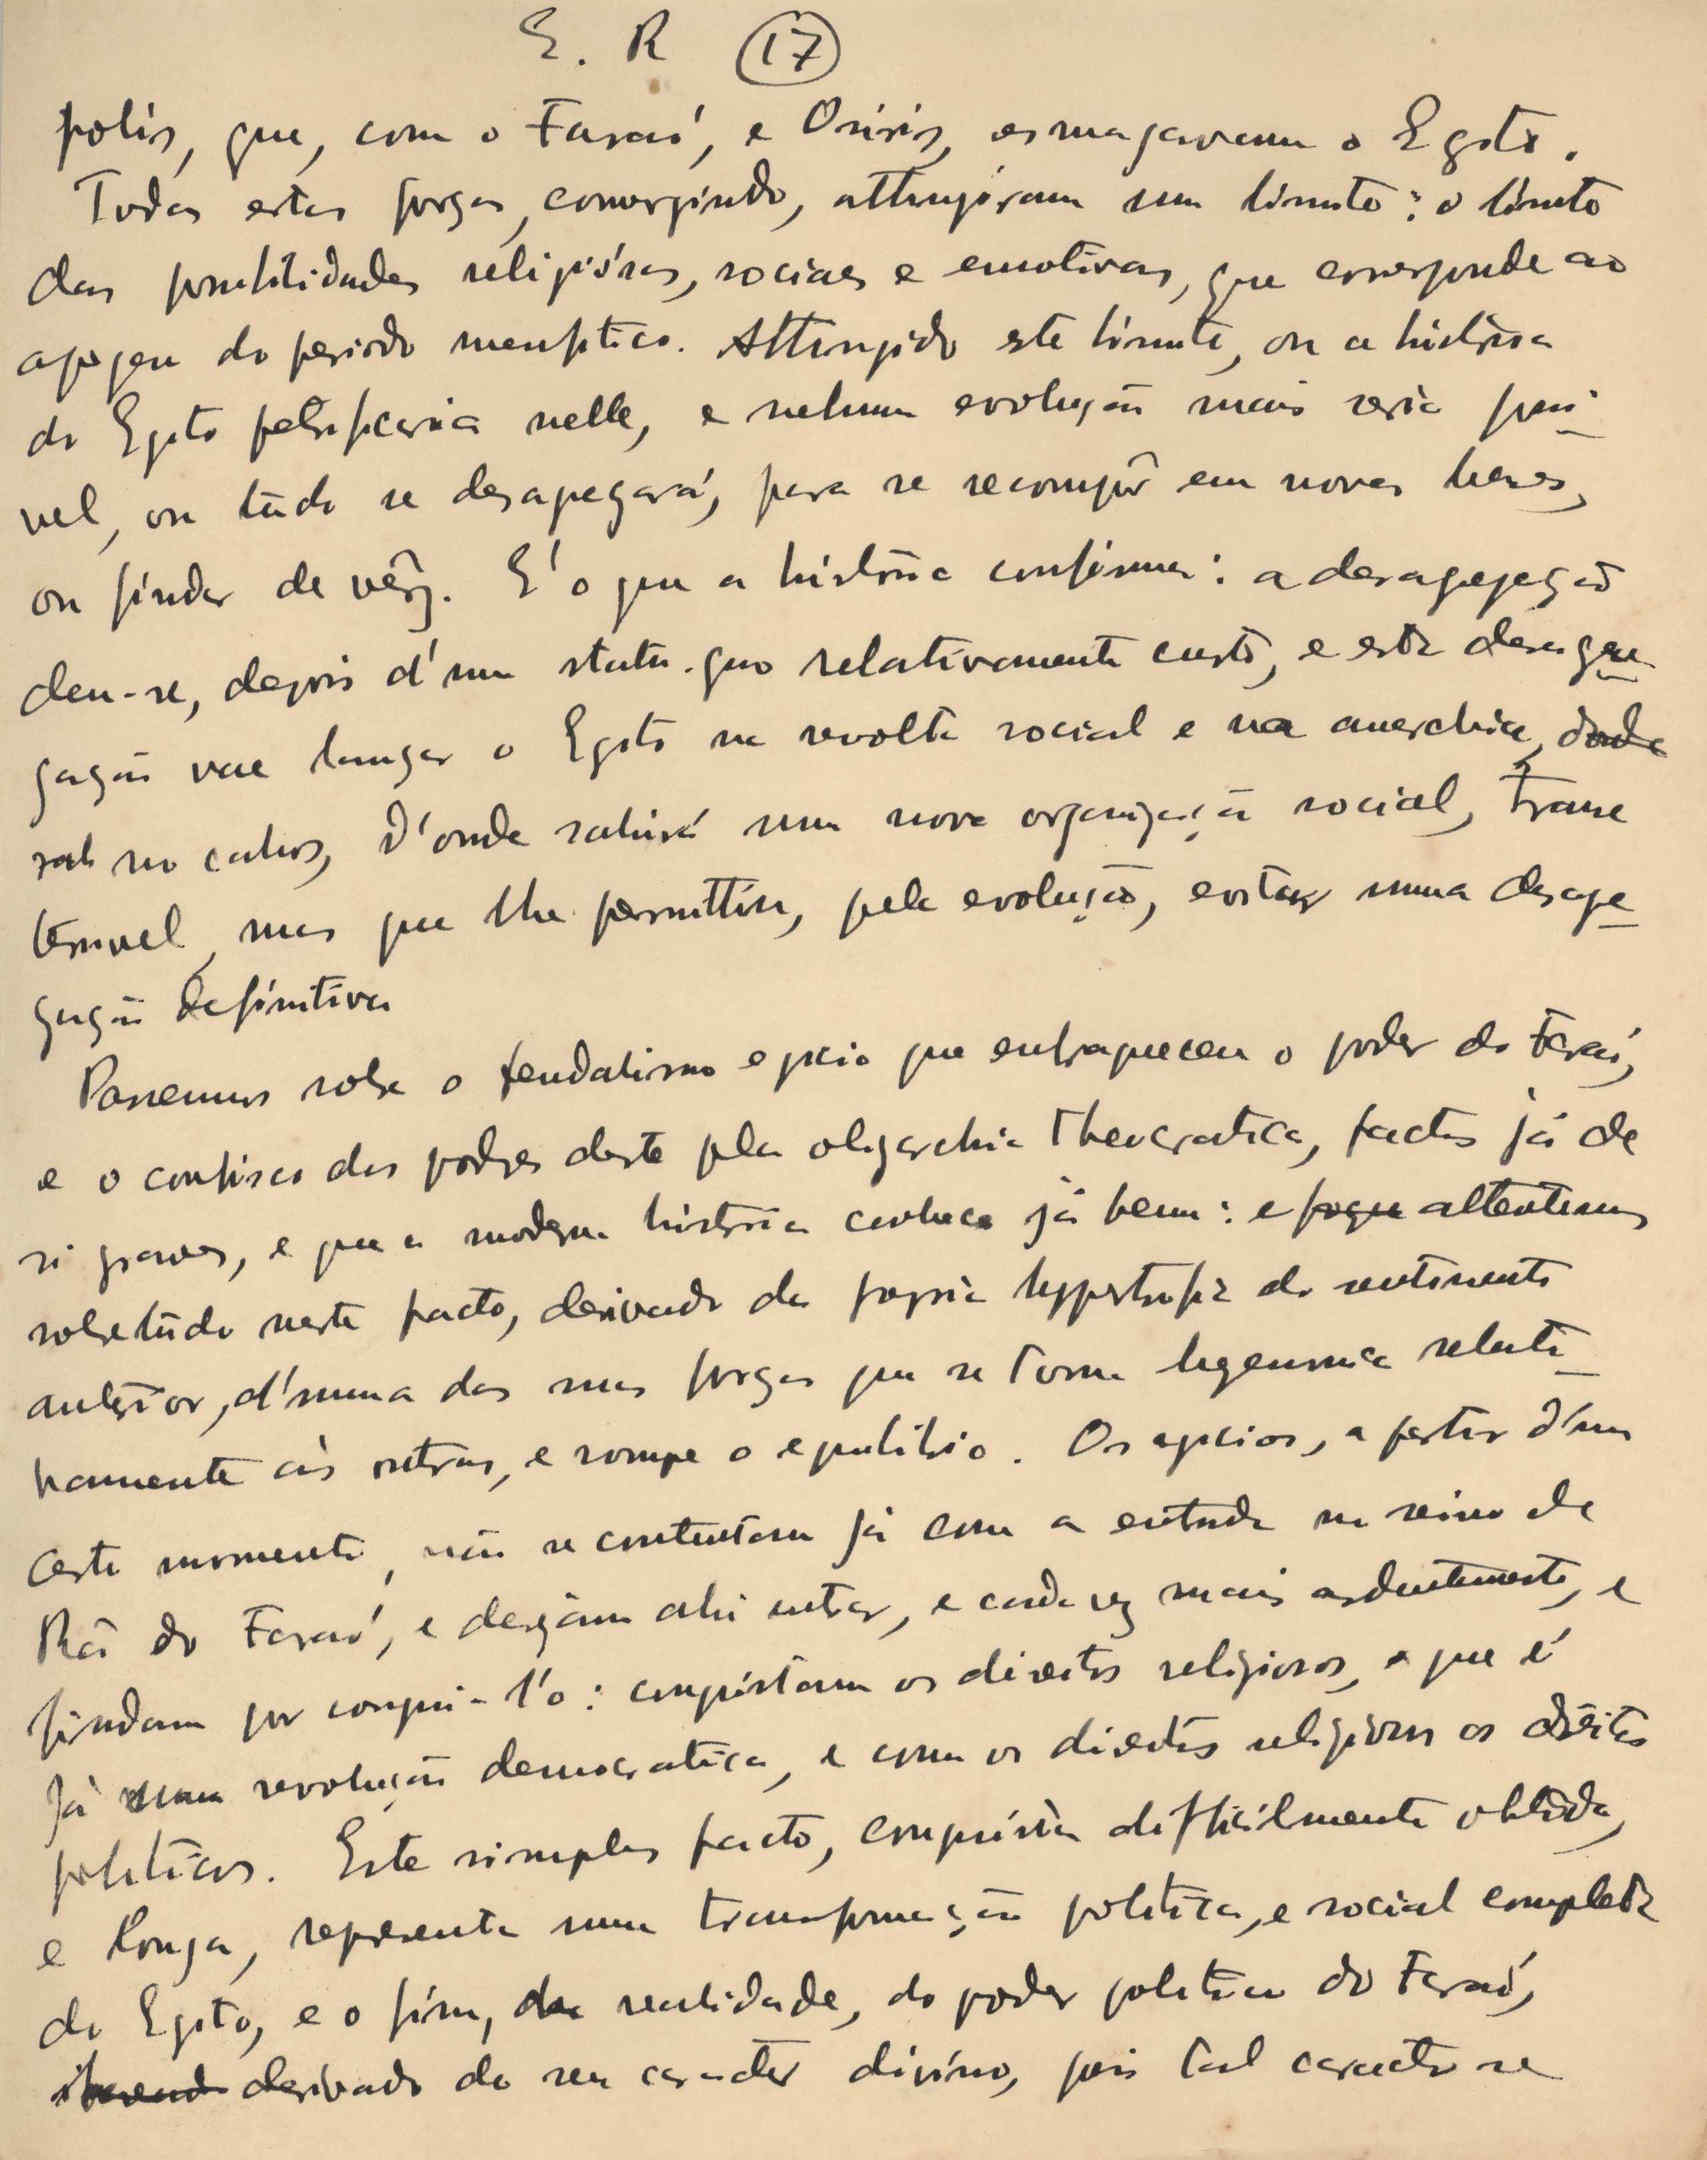 E. R (17)
polis, que, com o Faraó, e Osiris, esmagavam o Egito.
Todas estas forças, convergindo, attingiram um limite: o limite
das possibilidades religiósas, sociaes e emotivas, que corresponde ao
apogeu do periodo menfitico. Attingido este limite, ou a história
do Egito petrificaria nelle, e nehuma evolução mais seria possi-
vel, ou tudo se desagregará, para se recompôr em novas bases,
ou findar de vêz. E' o que a história confirma: a desagregação
deu-se, depois d'um statu-quo relativamente curto, e esta desagre-
gação vae lançar o Egito na revolta social e na anarchia,
no cahos, d'onde sahirá uma nova organização social,
terrivel, mas que lhe permittiu, pela evolução, evitar uma desagre-
gação definitiva
Passemos sobre o feudalismo egicio que enfraqueceu o poder do Faraó,
e o confisco dos poderes deste pela oligarchia theocratica, factos já de
si graves, e que a moderna história conhece já bem: e attentemos
sobretudo neste facto, derivado da propria hypertrofia do sentimento
anterior, d'uma das suas forças que se torna hegemonica relati-
vamente ás outras, e rompe o equilibrio. Os egicios, a partir d'um
certo momento, não se contentam já com a entrada no reino de
Rá do Faraó, e desejam ahi entrar, e cada vez mais ardentemente, e
findam por consegui-l'o: conquistam os direitos religiosos, o que é
já uma revolução democratica, e com os direitos religiosos os direitos
politicos. Este simples facto, conquista difficilmente obtida,
e longa, representa uma transformação politica, e social completa
do Egito, e o fim, da realidade, do poder politico do Faraó,
derivado do seu caracter divino, pois tal caracter se